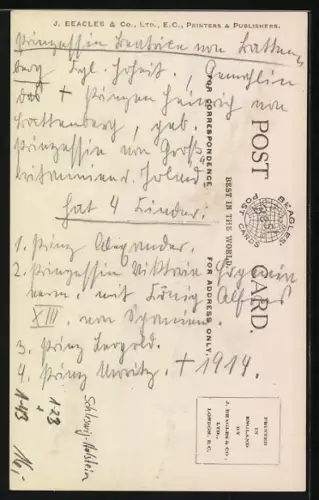 J. BEAGLES & CO., LTD., E.C., PRINTERS & PUBLISHERS.
Prinzessin Beatrice von Batten
berg Kgl. Hoheit. Gemahlin
des + Prinzen Heinrich von
Battenberg, geb.
Prinzessin von Groß
britannien u. Irland
hat 4 Kinder.
1. Prinz Alexander.
2. Prinzessin Viktoria Eugenia
verm. mit König Alfons
XIII. von Spanien.
3. Prinz Leopold.
4. Prinz Moritz. + 1914.
Schleswig-Holstein
123
143
POST CARD.
FOR CORRESPONDENCE
BEST IN THE WORLD.
FOR ADDRESS ONLY.
BEAGLES'
BEST
POST CARDS
PRINTED
IN
ENGLAND
BY
J. BEAGLES & CO.,
LTD.,
LONDON, E.C.